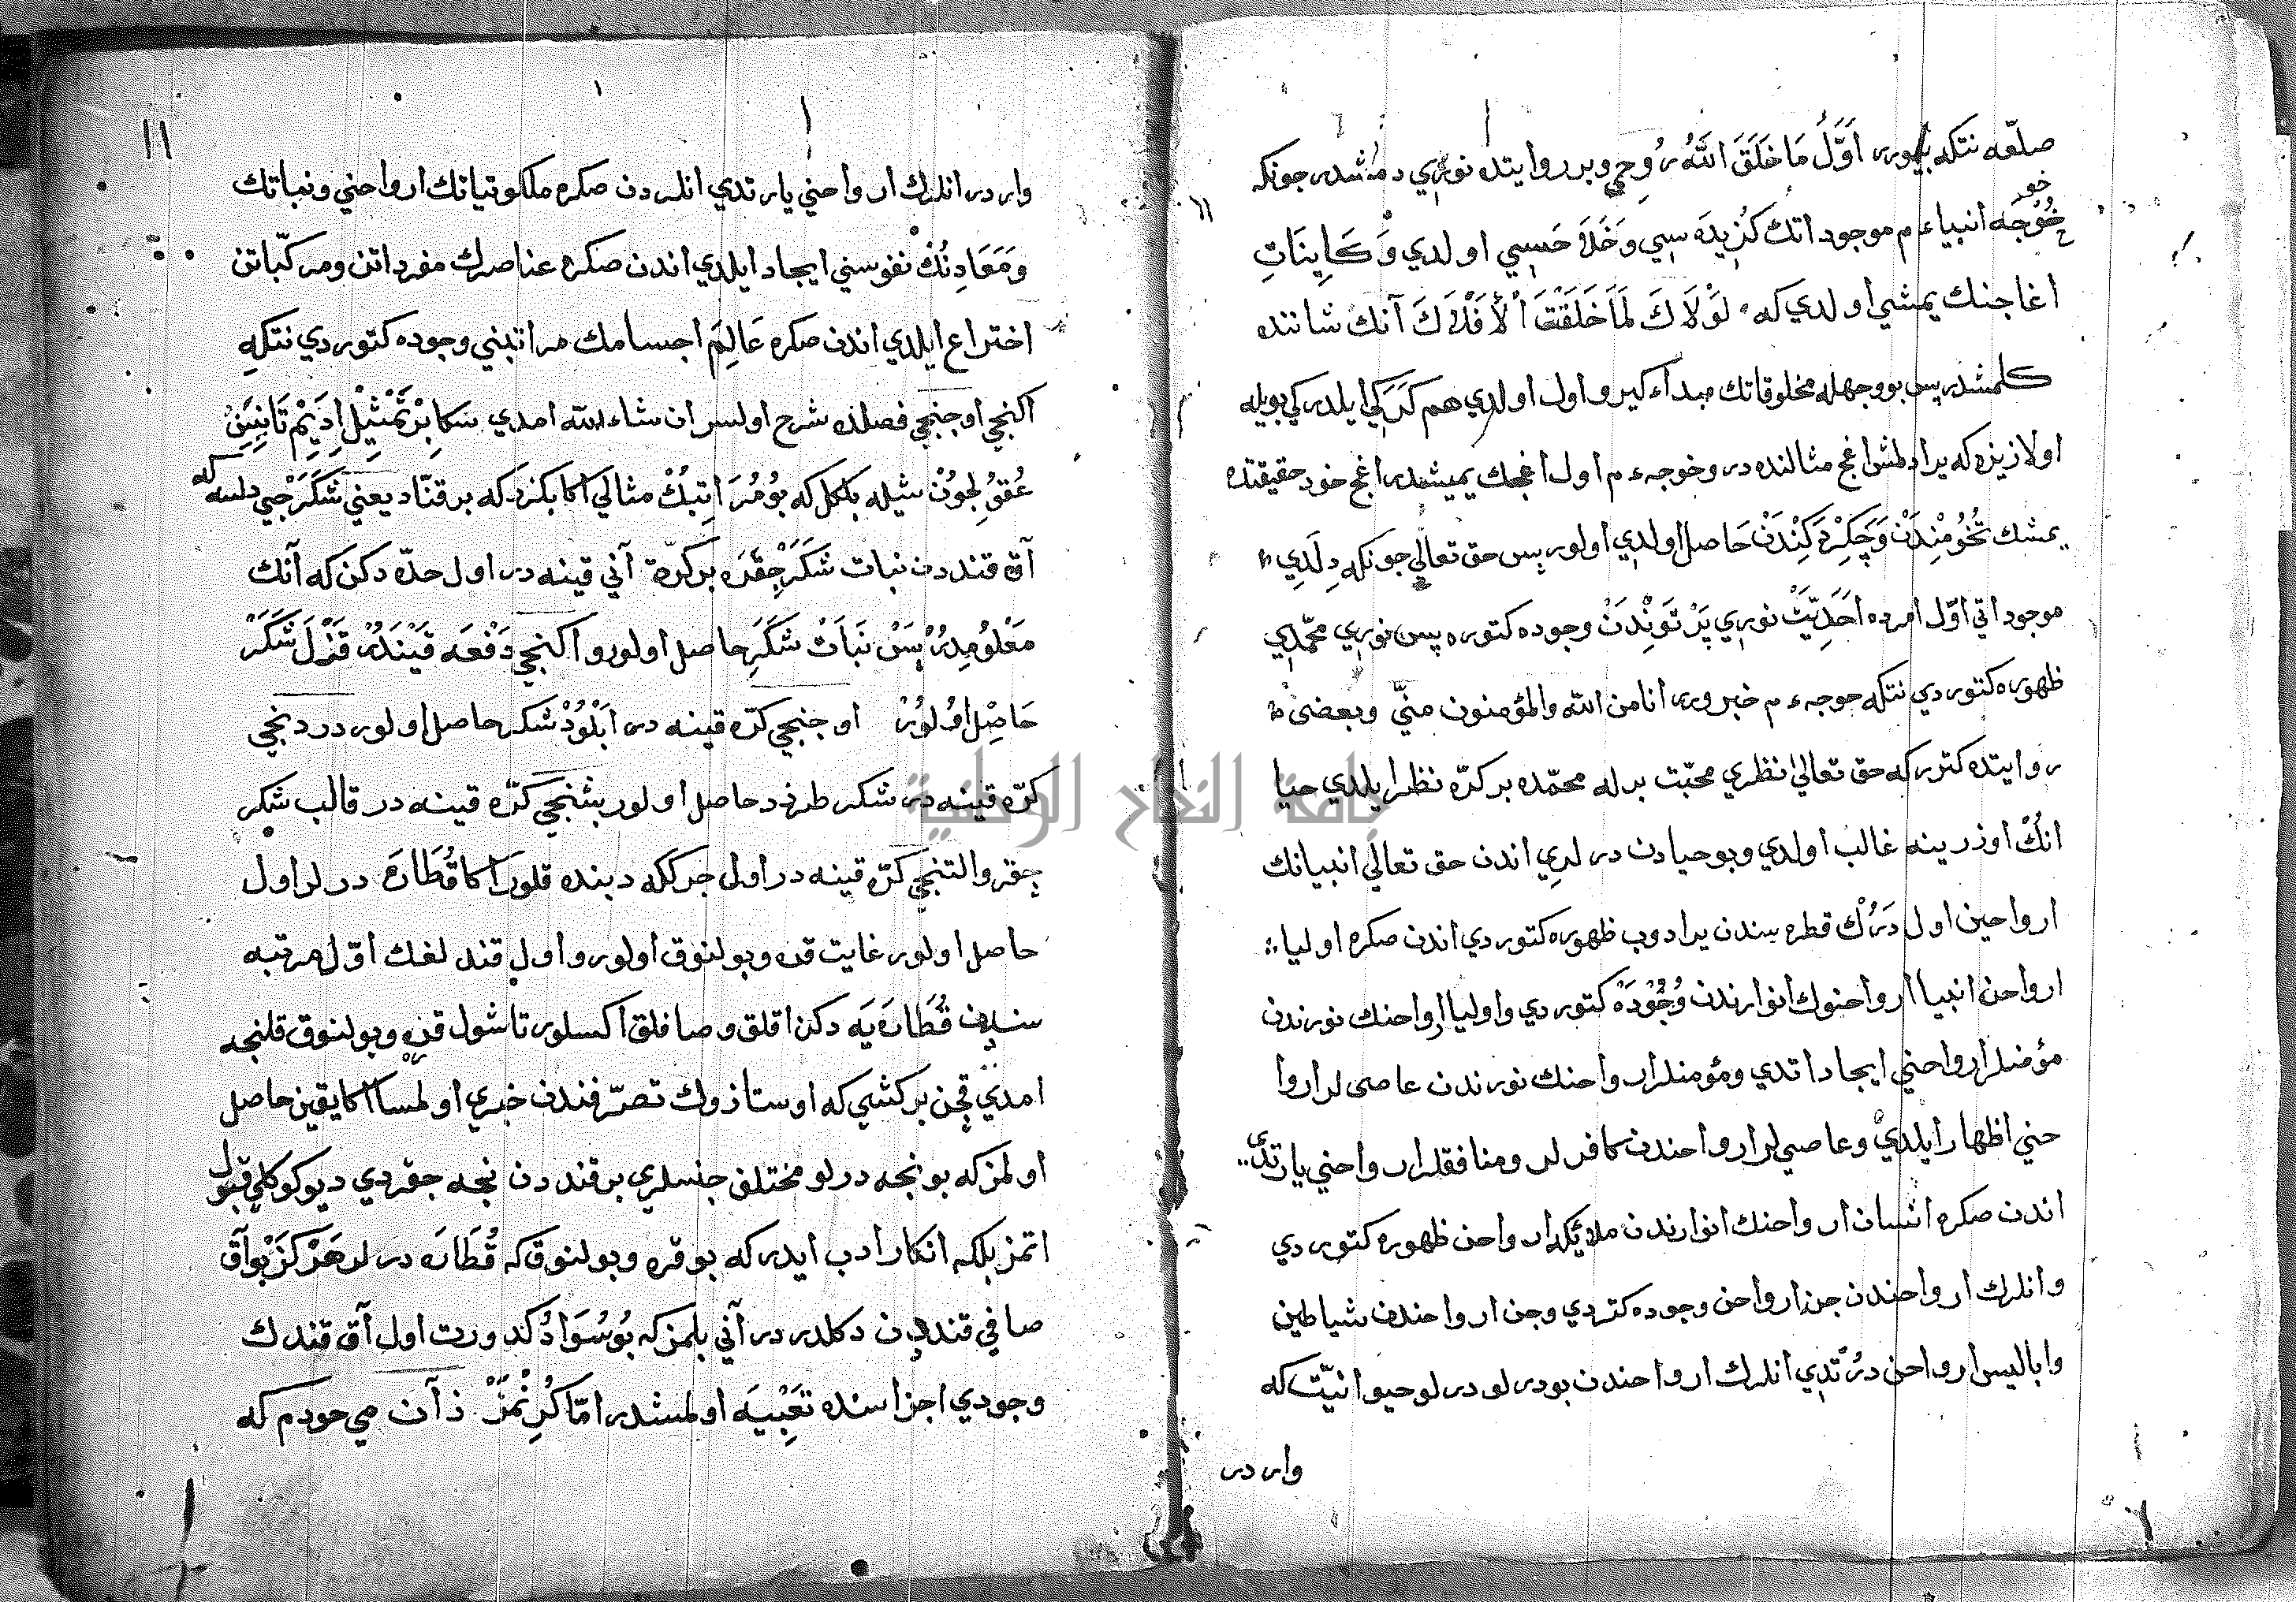 صلعه نتكه بيورر اَوَّلُ مَا خَلَقَ اللّٰهُ رُوحِي وبر روايتده نوري دمشدر جونكه
خُوْجَه انبياء م موجوداتك كُزِيدَه سي وَخُلَاصَه سِي اولدي وَكَايِنَاتِ
اغاجنك يمشي اولدي كه لَوْلَاكَ لَمَا خَلَقْتُ اْلأَفْلَاكَ آنك شاننده
كلمشدر پس بو وجهله مخلوقاتك مبداء كير و اول اولدي هم كَرَكِي ايلدركي بويله
اولا زيره كه يرادلمش اغج مثالنده در وخوجه ء م اول اغجك يميشدر اغج خود حقيقتده
يمشك تُخُومْنِدَنْ وَچَكِرْدَكِنْدَنْ حَاصل اولدي اولور پس حق تعالي جونكه دِلَدِي
موجوداتي اوّل امرده اَحَدِيَّتْ نوري پَرْتَوْنِدَنْ وجوده كتوره پس نوري محمّدي
ظهوره كتوردي نتكه خوجه ء م خبر ورر انا من الله والمؤمنون منّي وبعضى
روايتده كتررركه حق تعالي نظري محبّت برله محمّده بر كرّه نظر ايلدي حيا
انك اوزرينه غالب اولدي وبو حيادن درلدي اندن حق تعالي انبيانك
ارواحين اول دَرُكْ قطره سندن يرادوب ظهوره كتوردي اندن صكره اوليا
ارواحن انبيا ارواحنوك انوارندن وُجُوْدَه كتوردي واوليا ارواحنك نورندن
مؤمنلر ارواحني ايجاد اتدي ومؤمنلر ارواحنك نورندن عاصى لر اروا
حني اظهار ايلدي وعاصي لر ارواحندن كافرلر ومنافقلر ارواحني يارتدي
اندن صكره انسان ارواحنك انوارندن ملائكلر ارواحن ظهوره كتوردي
وانلرك ارواحندن جن ارواحن وجوده كتردي وجن ارواحندن شياطين
واباليس ارواحن درتدي انلرك ارواحندن بودرلو درلو حيوانيّت كه
وار در
١١
وار در انلرك ارواحني يارتدي انلردن صكره ملكوتيانك ارواحني ونباتك
وَمَعَادِنُكْ نفوسني ايجاد ايلدي اندن صكره عناصرك مفرداتن ومركّباتن
اختراع ايلدي اندن صكره عَالِمَ اجسامك مراتبني وجوده كتوردي نتكه
اكنجي اوجنجي فصلده شرح اولسر ان شاء الله امدي سكا بِرْ تَمْثِيْل اِدَيِمْ تَا
بلكل كه بُومُرَاتِبُكْ مثالي اكا بكزر كه بر قنّاد يعني شَكَرْجي دلسه كه
آق قنددن نبات شَكَرْ چِقَرَه بر كرّه آني قينه در اول حدّه دكن كه آنك
مَعْلُومِدِرْ پَسْ نَبَاتْ شَكَرِ حاصل اولور و اكنجي دَفْعَه قَيْنَدُرْ قَزْلْ شَكَرْ
حَاصِلْ اوُلوُرْ اوجنجي كرّه قينه در اَبْلُوْدْ شكر حاصل اولور دردنجي
كرّه قينه در شكر طرزد حاصل اولور بشنجي كرّه قينه در قالب شكر
چقر والتنجي كرّه قينه در اولى جركله دبنده قلور اكا قُطَارَه درلر اول
حاصل اولور غايت قره وبولنوق اولور و اول قند لغك اوّل مرتبه
سندن قُطَارَه يَه دكن اقلق وصافلق اكسلور تا شول قره وبولنوق قلنجه
امدي قچن بر كشي كه اوستاذوك تصرّفندن خبري اولمسا اكا يقين حاصل
اولمز كه بونجه درلو مختلف جنسلري بر قنددن نجه جقردي ديو كوكلي قبول
اتمز بلكه انكار ادب ايدر كه بو قره وبولنوق كه قُطَارَه درلر هَرْ كَزْ بو آق
صافي قنددن دكلدر در آني بلمز كه بُوسَوَادْ كدورت اول آق قندك
وجودي اجزاسنده تَعْبِيَه اولمشدر امّا كُرِنْمَزْ ذ آن مي خودم كه